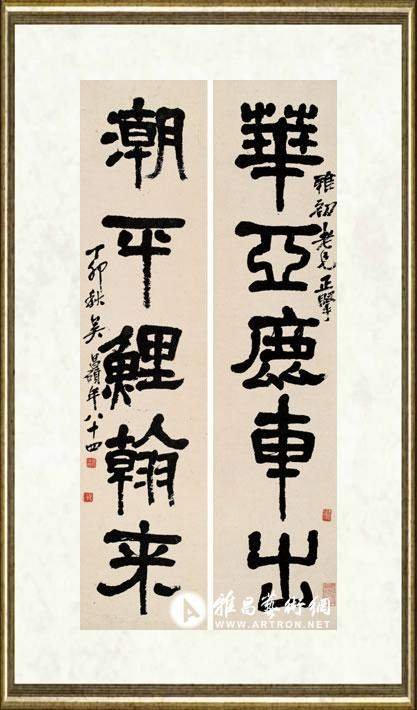 華亞鹿車出
雅初老兄正擘
潮平鯉翰来
丁卯秋吳昌碩年八十四
雅昌藝術網
WWW.ARTRON.NET